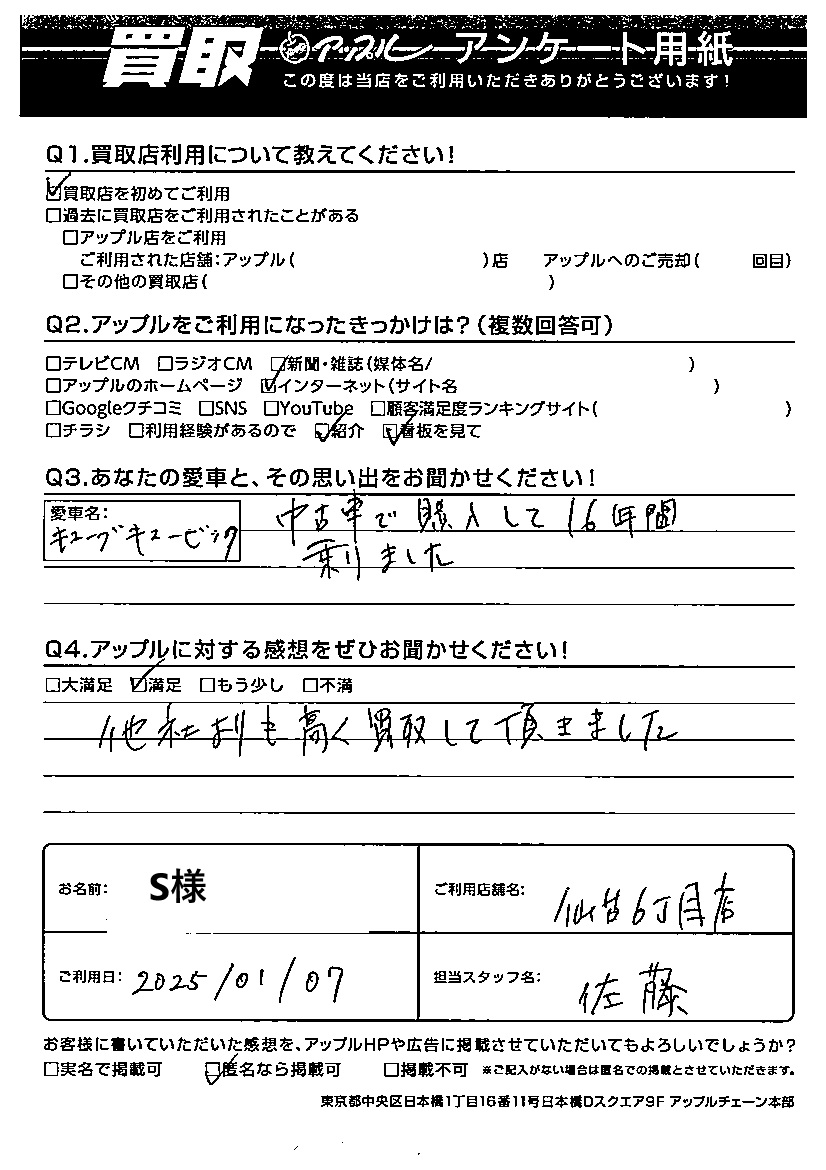 買取 アップル アンケート用紙
この度は当店をご利用いただきありがとうございます!
Q1.買取店利用について教えてください!
☑買取店を初めてご利用
□過去に買取店をご利用されたことがある
□アップル店をご利用
ご利用された店舗:アップル( )店 アップルへのご売却( 回目)
□その他の買取店( )
Q2.アップルをご利用になったきっかけは?(複数回答可)
□テレビCM □ラジオCM □新聞・雑誌(媒体名/ )
□アップルのホームページ ☑インターネット(サイト名 )
□Googleクチコミ □SNS □YouTube □顧客満足度ランキングサイト( )
□チラシ □利用経験があるので ☑紹介 ☑看板を見て
Q3.あなたの愛車と、その思い出をお聞かせください!
愛車名:
キューブキュービック
中古車で購入して16年間
乗りました
Q4.アップルに対する感想をぜひお聞かせください!
□大満足 ☑満足 □もう少し □不満
他社よりも高く買取して頂きました
お名前: S様 ご利用店舗名: 仙台6丁目店
ご利用日: 2025/01/07 担当スタッフ名: 佐藤
お客様に書いていただいた感想を、アップルHPや広告に掲載させていただいてもよろしいでしょうか?
□実名で掲載可 ☑匿名なら掲載可 □掲載不可 ※ご記入がない場合は匿名での掲載とさせていただきます。
東京都中央区日本橋1丁目16番11号日本橋Dスクエア9F アップルチェーン本部